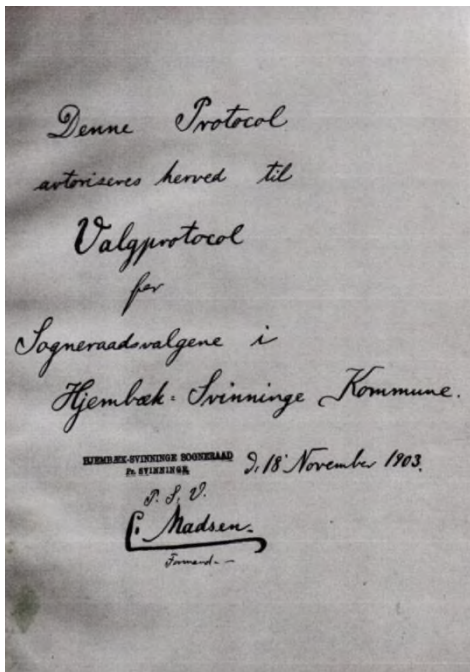 Denne Protocol
avtoriseres herved til
Valgprotocol
for
Sogneraadsvalgene i
Hjembæk-Svinninge Kommune.
HJEMBÆK-SVINNINGE SOGNERAAD
Pr. SVINNINGE.
d. 18' November 1903.
P. S. V.
C. Madsen.
Formand.